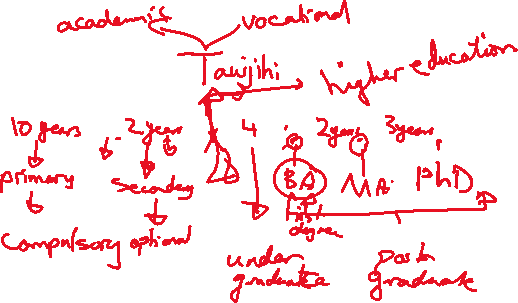 academic vocational
awjihi
higher education
10 years 2 years 4 2 years 3 years
primary secondary BA MA PhD
first degree
compulsory optional
under graduate
post graduate